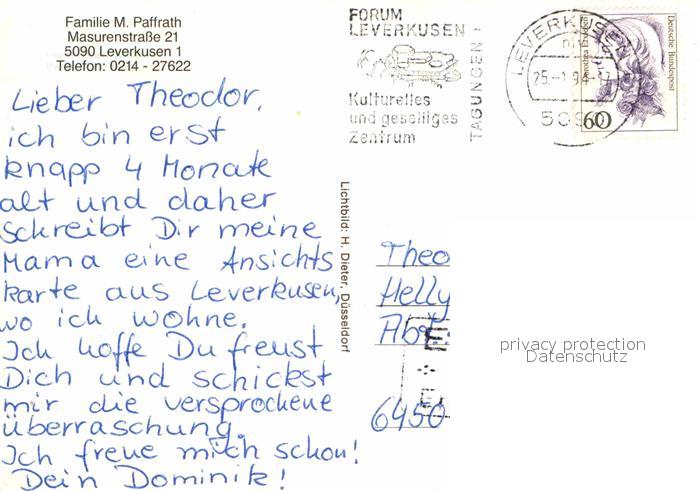 Familie M. Paffrath
Masurenstraße 21
5090 Leverkusen 1
Telefon: 0214 - 27622
FORUM
LEVERKUSEN
Kulturelles
und geselliges
Zentrum
TAGUNGEN
LEVERKUSEN
25.-1.94-17
509
Deutsche Bundespost
60
Lieber Theodor,
ich bin erst
knapp 4 Monate
alt und daher
schreibt Dir meine
Mama eine Ansichts
karte aus Leverkusen,
wo ich wohne.
Ich hoffe Du freust
Dich und schickst
mir die versprochene
überraschung.
Ich freue mich schon!
Dein Dominik!
Lichtbild: H. Dieter, Düsseldorf
Theo
Helly
Abt.
6450
privacy protection
Datenschutz